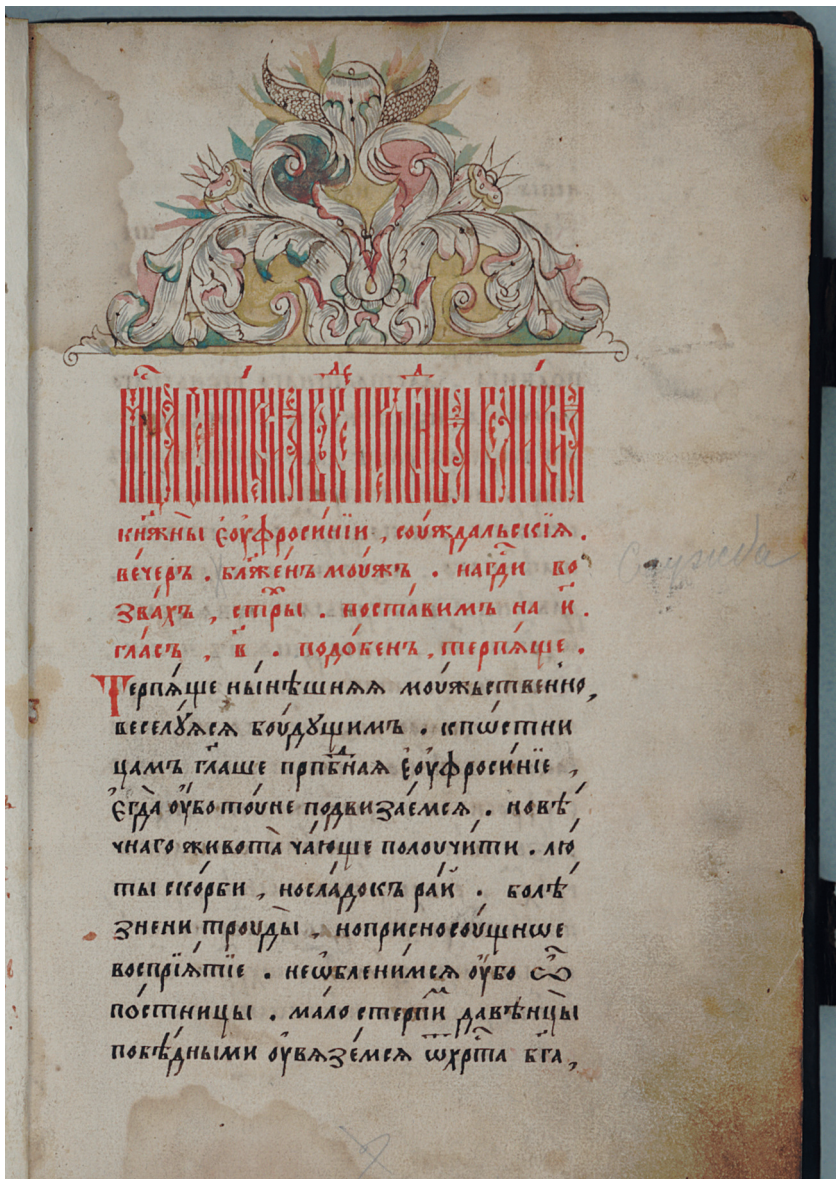 мⷭ҇ца септемврїа въ к҃е прпⷣбныѧ великїѧ
кнѧжны̀ єѵфросинїи, соуждальскїѧ.
ве́черъ. блаже́нъ моужъ. на гдⷭ҇и во
зва́хъ, стⷯры. поставимъ на и҃.
гла́съ, в҃. подо́бенъ, терпѧ́ще.
Терпѧ́ще ны́нѣшнѧѧ моу́жьственно,
веселꙋ́ѧсѧ боу́дꙋщимъ. к пѡ́стни
цамъ гл҃аше прпⷣбнаѧ є҆оуфросинїе,
є҆гда̀ оу҆бо тоу́не подвиза́емсѧ. но вѣ́
чнаго живота̀ ча́юще полоучи́ти. лю́
ты ско́рби, но сла́докъ ра́й. болѣ́
знени троуды̀, но присносоу́щное
воспрїѧ́тїе. не ѡ҆блени́мсѧ оу҆́бо ѽ
по́стницы. ма́ло сте́рпиⷨ да вѣнцы̀
побѣ́дными оу҆вѧзе́мсѧ ѿ хрⷭ҇та̀ бг҃а,
Служба